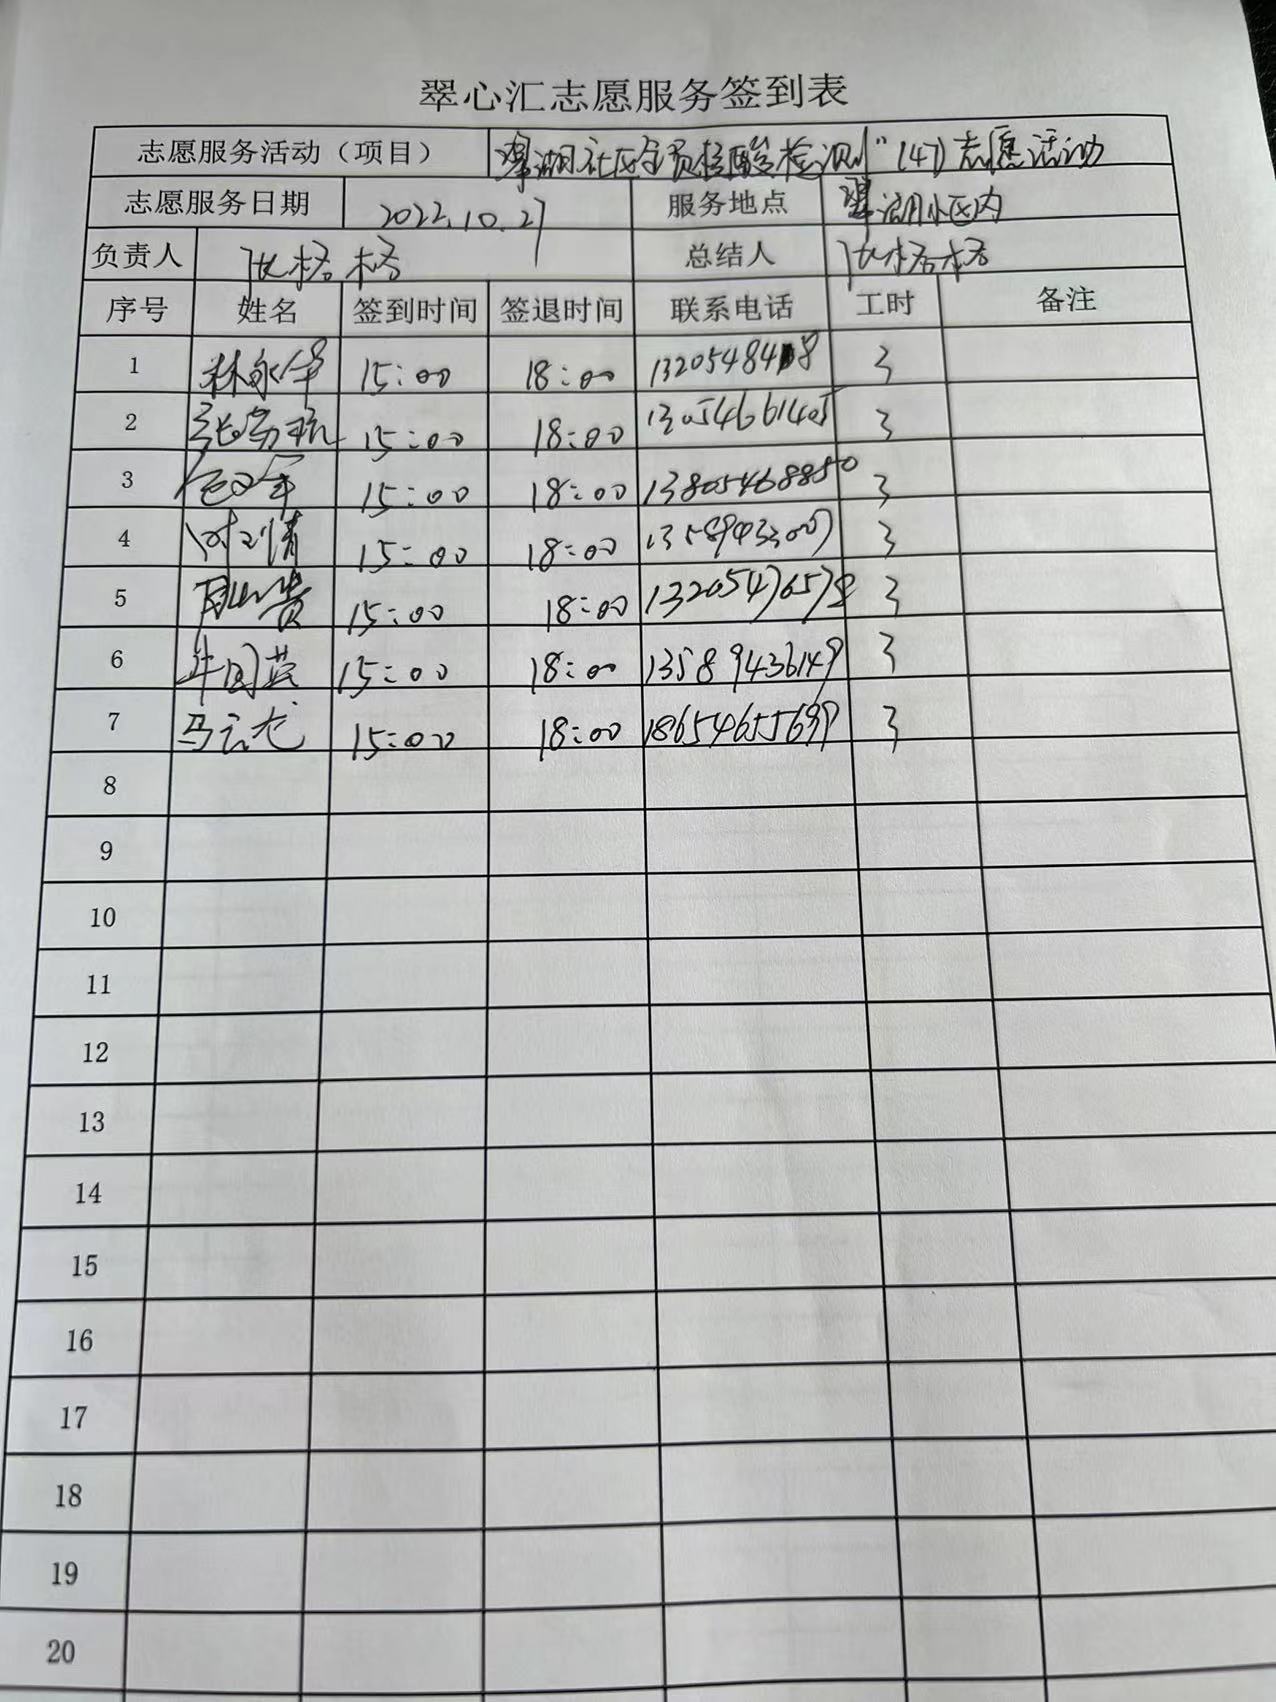 翠心汇志愿服务签到表
志愿服务活动（项目） 翠湖社区全员核酸检测"(47)志愿活动
志愿服务日期 2022.10.27 服务地点 翠湖小区内
负责人 张格格 总结人 张格格
序号 姓名 签到时间 签退时间 联系电话 工时 备注
1 15:00 18:00 3
2 15:00 18:00 13054661405 3
3 15:00 18:00 13805468850 3
4 15:00 18:00 3
5 15:00 18:00 13205476578 3
6 15:00 18:00 13589436149 3
7 马云龙 15:00 18:00 18654655699 3
8
9
10
11
12
13
14
15
16
17
18
19
20